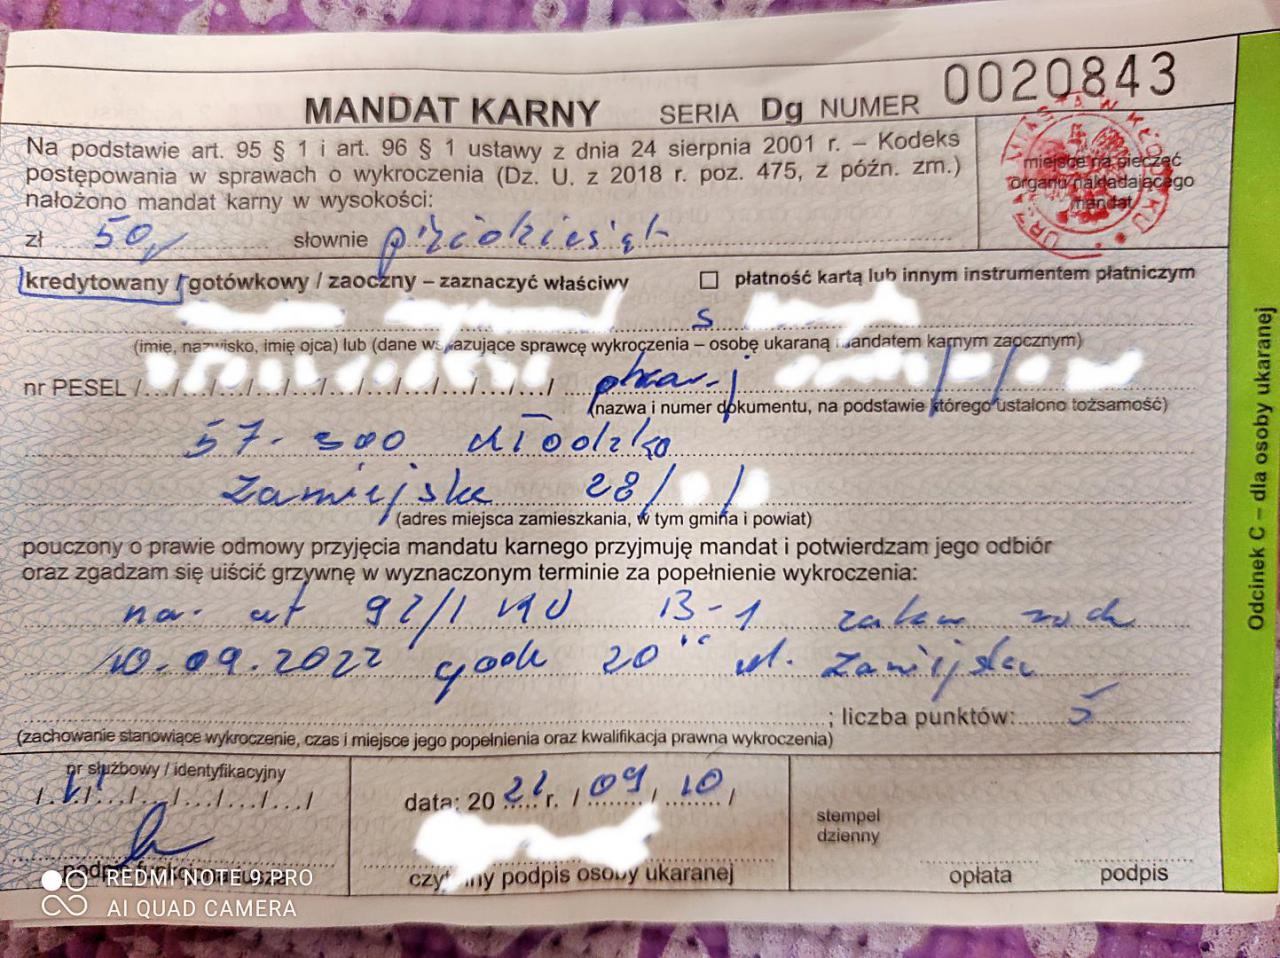 MANDAT KARNY SERIA Dg NUMER 0020843
Na podstawie art. 95 § 1 i art. 96 § 1 ustawy z dnia 24 sierpnia 2001 r. – Kodeks
postępowania w sprawach o wykroczenia (Dz. U. z 2018 r. poz. 475, z późn. zm.)
nałożono mandat karny w wysokości:
miejsce na pieczęć
organu nakładającego
mandat
zł 50,- słownie pięćdziesiąt
kredytowany / gotówkowy / zaoczny – zaznaczyć właściwy □ płatność kartą lub innym instrumentem płatniczym
s
(imię, nazwisko, imię ojca) lub (dane wskazujące sprawcę wykroczenia – osobę ukaraną mandatem karnym zaocznym)
nr PESEL
(nazwa i numer dokumentu, na podstawie którego ustalono tożsamość)
57-300 Kłodzko
Zamiejska 28/ /
(adres miejsca zamieszkania, w tym gmina i powiat)
pouczony o prawie odmowy przyjęcia mandatu karnego przyjmuję mandat i potwierdzam jego odbiór
oraz zgadzam się uiścić grzywnę w wyznaczonym terminie za popełnienie wykroczenia:
art 92/1 KW B-1 zakaz ruch
10.09.2022 godz 20 ul. Zamiejska
; liczba punktów: 5
(zachowanie stanowiące wykroczenie, czas i miejsce jego popełnienia oraz kwalifikacja prawna wykroczenia)
nr służbowy / identyfikacyjny
data: 20 22 r. / 09 / 10 /
stempel
dzienny
podpis funkcjonariusza
czytelny podpis osoby ukaranej
opłata podpis
Odcinek C – dla osoby ukaranej
REDMI NOTE 9 PRO
AI QUAD CAMERA